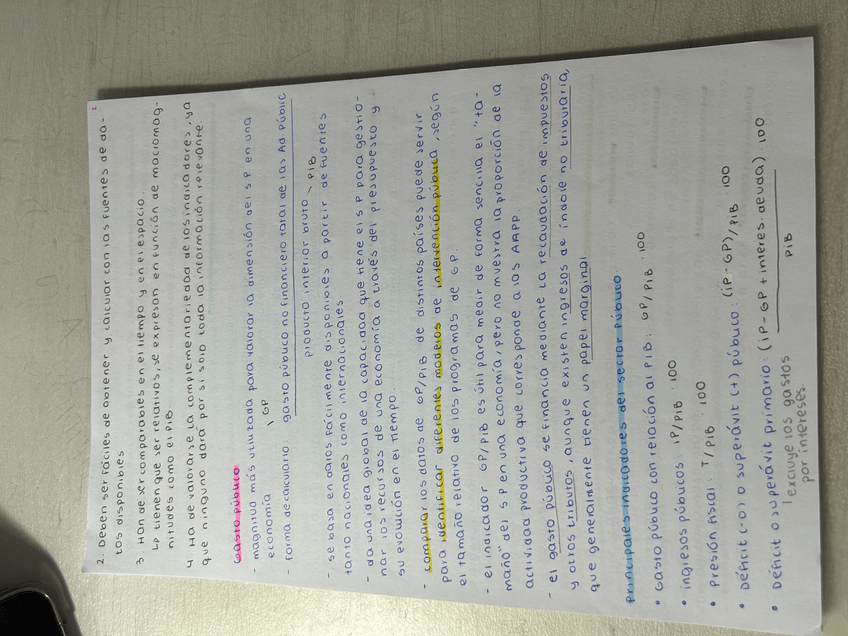 2
2. Deben ser fáciles de obtener y calcular con las fuentes de da-
tos disponibles
3. Han de ser comparables en el tiempo y en el espacio.
↳ tienen que ser relativos, se expresan en función de macromag-
nitudes como el PIB
4. Ha de valorarse la complementariedad de los indicadores, ya
que ninguno dará por sí solo toda la información relevante.
Gasto público
- magnitud más utilizada para valorar la dimensión del SP en una
economía \ GP
- forma de calcularlo: gasto público no financiero total de las Ad Públic
producto interior bruto \ PIB
- se basa en datos fácilmente disponibles a partir de fuentes
tanto nacionales como internacionales
- da una idea global de la capacidad que tiene el SP para gestio-
nar los recursos de una economía a través del presupuesto y
su evolución en el tiempo.
- comparar los datos de GP/PIB de distintos países puede servir
para identificar diferentes modelos de intervención pública, según
el tamaño relativo de los programas de GP.
- el indicador GP/PIB es útil para medir de forma sencilla el "ta-
maño" del SP en una economía, pero no muestra la proporción de la
actividad productiva que corresponde a las AAPP.
- el gasto público se financia mediante la recaudación de impuestos
y otros tributos, aunque existen ingresos de índole no tributaria,
que generalmente tienen un papel marginal
Principales indicadores del sector público
• Gasto público con relación al PIB: GP/PIB · 100
• ingresos públicos: iP/PIB · 100
• Presión fiscal: T/PIB · 100
• Déficit (-) o superávit (+) público: (iP-GP)/PIB · 100
• Déficit o superávit primario: (iP-GP + interes. deuda) · 100
PIB
| excluye los gastos
por intereses.